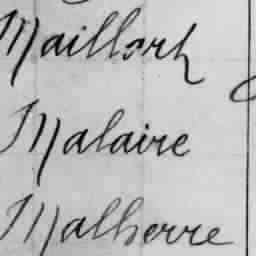 Maillard
Malaire
Malherre